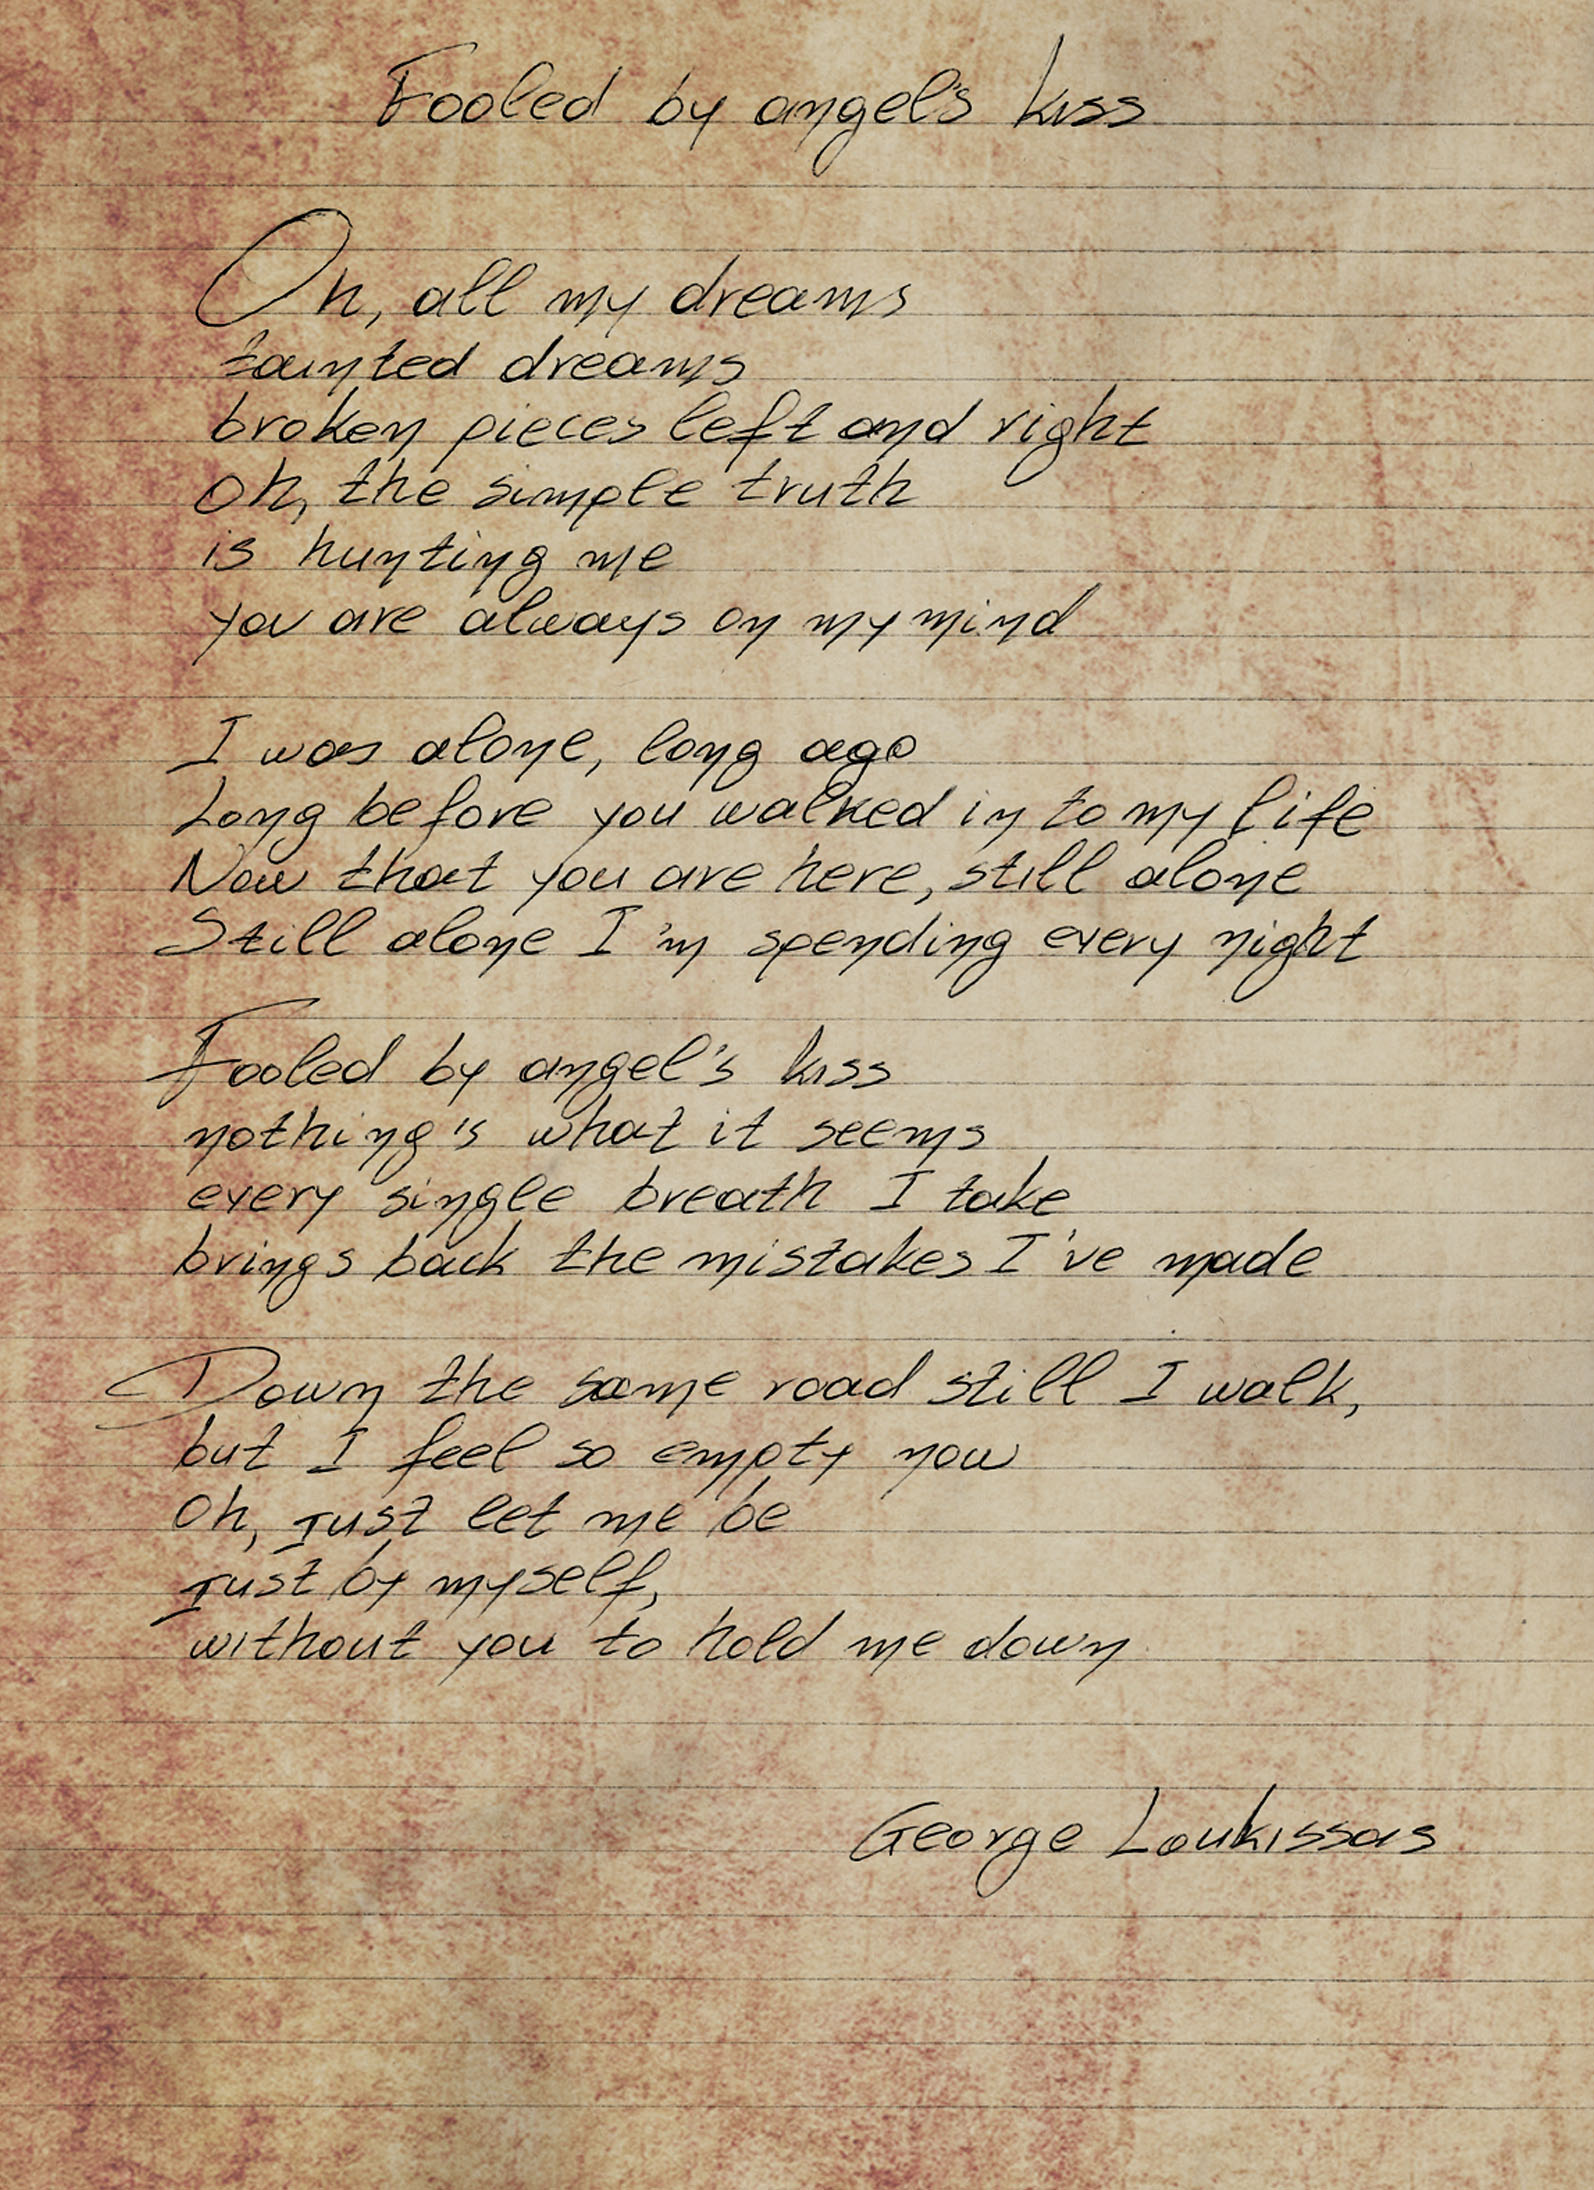 Fooled by angel's kiss
Oh, all my dreams
taunted dreams
broken pieces left and right
oh, the simple truth
is hunting me
you are always on my mind
I was alone, long ago
Long before you walked in to my life
Now that you are here, still alone
Still alone I'm spending every night
Fooled by angel's kiss
nothing's what it seems
every single breath I take
brings back the mistakes I've made
Down the same road still I walk,
but I feel so empty now
Oh, just let me be
just by myself,
without you to hold me down
George Loukissas